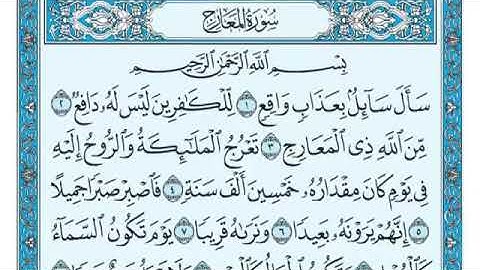 سُورَةُ المَعَارِجِ
بِسْمِ ٱللَّهِ ٱلرَّحْمَٰنِ ٱلرَّحِيمِ
سَأَلَ سَآئِلٌۢ بِعَذَابٖ وَاقِعٖ ١ لِّلۡكَٰفِرِينَ لَيۡسَ لَهُۥ دَافِعٞ ٢
مِّنَ ٱللَّهِ ذِي ٱلۡمَعَارِجِ ٣ تَعۡرُجُ ٱلۡمَلَٰٓئِكَةُ وَٱلرُّوحُ إِلَيۡهِ
فِي يَوۡمٖ كَانَ مِقۡدَارُهُۥ خَمۡسِينَ أَلۡفَ سَنَةٖ ٤ فَٱصۡبِرۡ صَبۡرٗا جَمِيلًا
٥ إِنَّهُمۡ يَرَوۡنَهُۥ بَعِيدٗا ٦ وَنَرَىٰهُ قَرِيبٗا ٧ يَوۡمَ تَكُونُ ٱلسَّمَآءُ